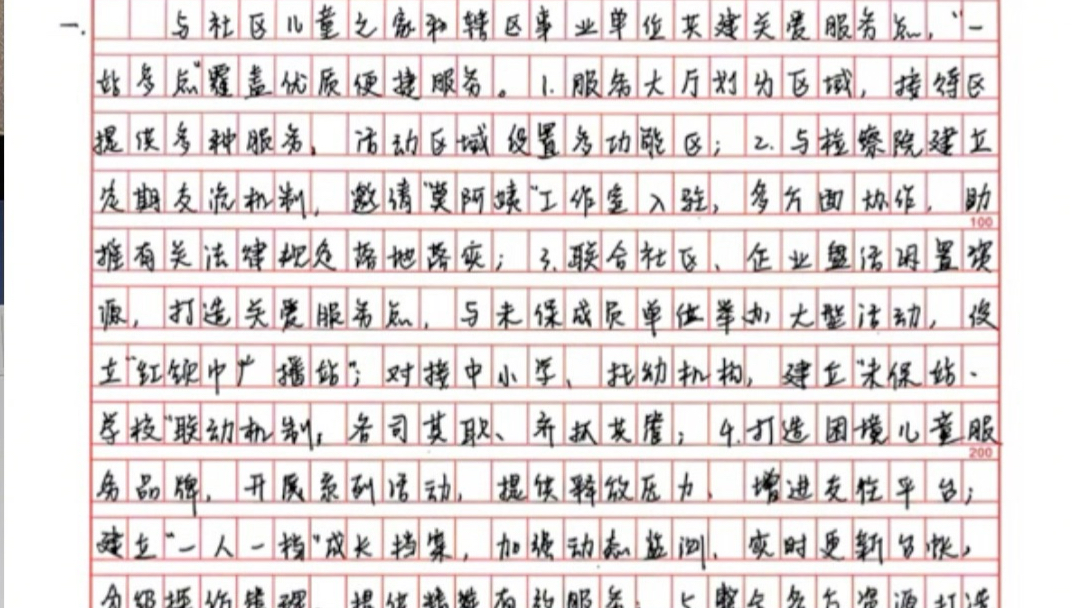 一.
与社区儿童之家和辖区事业单位共建关爱服务点,"一
站多点"覆盖优质便捷服务。1.服务大厅划为区域,接待区
提供多种服务,活动区域设置多功能区;2.与检察院建立
定期交流机制,邀请"莫阿姨"工作室入驻,多方面协作,助
100
推有关法律规定落地落实;3.联合社区、企业盘活闲置资
源,打造关爱服务点,与未保成员单位举办大型活动,设
立"红领巾广播站";对接中小学、托幼机构,建立"未保站-
学校"联动机制,各司其职、齐抓共管;4.打造困境儿童服
200
务品牌,开展系列活动,提供释放压力、增进交往平台;
建立"一人一档"成长档案,加强动态监测,实时更新台帐,
提供精准有效服务;5.整合多方资源打造